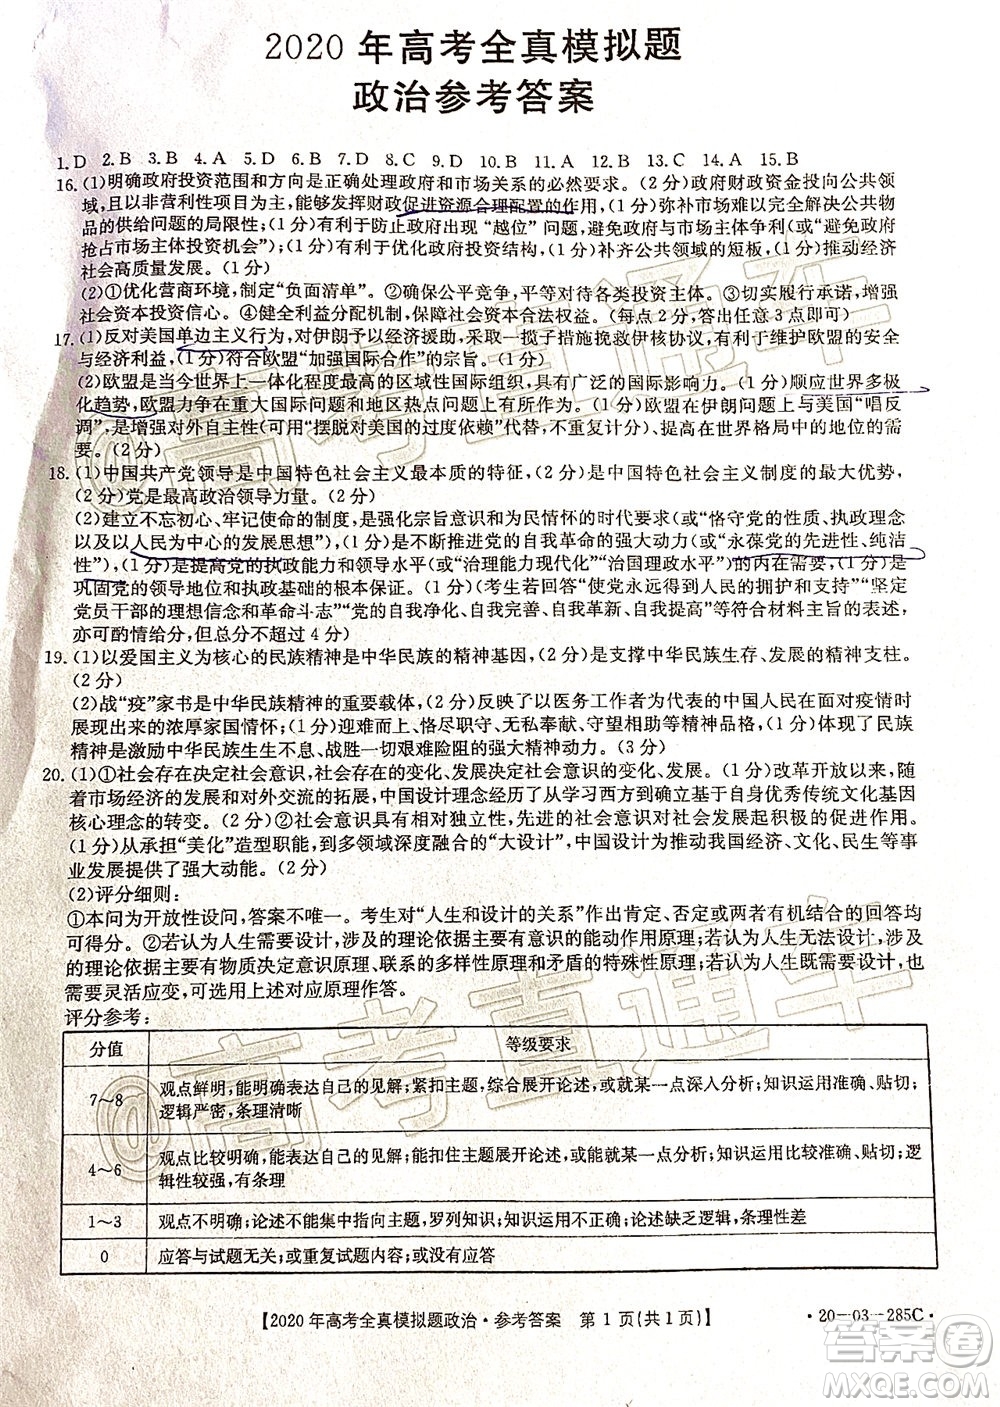 2020 年高考全真模拟题
政治参考答案
1.D 2.B 3.B 4.A 5.D 6.B 7.D 8.C 9.D 10.B 11.A 12.B 13.C 14.A 15.B
16.(1)明确政府投资范围和方向是正确处理政府和市场关系的必然要求。(2分)政府财政资金投向公共领
域,且以非营利性项目为主,能够发挥财政促进资源合理配置的作用,(1分)弥补市场难以完全解决公共物
品的供给问题的局限性;(1分)有利于防止政府出现“越位”问题,避免政府与市场主体争利(或“避免政府
抢占市场主体投资机会”)(1分);有利于优化政府投资结构,(1分)补齐公共领域的短板,(1分)推动经济
社会高质量发展。(1分)
(2)①优化营商环境,制定“负面清单”。②确保公平竞争,平等对待各类投资主体。③切实履行承诺,增进
社会资本投资信心。④健全利益分配机制,保障社会资本合法权益。(每点2分,答出任意3点即可)
17.(1)反对美国单边主义行为,对伊朗给予经济援助,(1分)采取一揽子措施挽救伊核协议,有利于维护欧盟的安全
与经济利益,(1分)符合欧盟“加强国际合作”的宗旨。(1分)
(2)欧盟是当今世界上一体化程度最高的区域性国际组织,具有广泛的国际影响力。(1分)顺应世界多极
化趋势,欧盟力争在重大国际问题和地区热点问题上发挥作用。(1分)欧盟在伊朗问题上与美国“唱反
调”,是增强对外自主性(可用“摆脱对美国的过度依赖”代替,不重复计分)、提高在世界格局中的地位的需
要。(2分)
18.(1)中国共产党领导是中国特色社会主义最本质的特征,(2分)是中国特色社会主义制度的最大优势,
(2分)党是最高政治领导力量。(2分)
(2)建立不忘初心、牢记使命的制度,是强化宗旨意识和为民情怀的时代要求(或“恪守党的性质、执政理念
以及以人民为中心的发展思想”),(1分)是不断推进党的自我革命的强大动力(或“永葆党的先进性、纯洁
性”),(1分)是提高党的执政能力和领导水平(或“治理能力现代化”“治国理政水平”)的内在需要,(1分)是
巩固党的领导地位和执政基础的根本保证。(1分)(考生若答“使党永远得到人民的拥护和支持”“坚定
党员干部的理想信念和革命斗志”“党的自我净化、自我完善、自我革新、自我提高”等符合材料主旨的表述,
亦可酌情给分,但总分不超过4分)
19.(1)以爱国主义为核心的民族精神是中华民族的精神基因,(2分)是支撑中华民族生存、发展的精神支柱。
(2分)
(2)战“疫”家书是中华民族精神的重要载体,(2分)反映了以医务工作者为代表的中国人民在面对疫情时
展现出来的浓厚家国情怀;(1分)迎难而上、恪尽职守、无私奉献、守望相助等精神品格,(1分)体现了民族
精神是激励中华民族生生不息、战胜一切艰难险阻的强大精神动力。(3分)
20.(1)①社会存在决定社会意识,社会存在的变化、发展决定社会意识的变化、发展。(1分)改革开放以来,随
着市场经济的发展和对外交流的拓展,中国设计理念经历了从学习西方到确立基于自身优秀传统文化基因
核心理念的转变。(2分)②社会意识具有相对独立性,先进的社会意识对社会发展起积极的促进作用。
(1分)从承担“美化”造型职能,到多领域深度融合的“大设计”,中国设计有效推动我国经济、文化、民生等事
业发展提供了强大动能。(2分)
(2)评分细则:
①本问为开放性设问,答案不唯一。考生对“人生和设计的关系”作出肯定、否定或两者有机结合的回答均
可得分。②若认为人生需要设计,涉及的理论依据主要有意识的能动作用原理;若认为人生无法设计,涉及
的理论依据主要有物质决定意识原理、联系的多样性原理和矛盾的特殊性原理;若认为人生既需要设计,也
需要灵活应变,可选用上述对应原理作答。
评分参考:
分值 等级要求
7～8 观点鲜明,能明确表达自己的见解;紧扣主题,综合展开论述,或就某一点深入分析;知识运用准确、贴切;
逻辑严密,条理清晰
4～6 观点比较明确,能结合自己的见解;能扣住主题展开论述,或能就某一点论述;知识运用比较准确、贴切;逻
辑性较强,条理清晰
1～3 观点不明确;论述不能集中指向主题,罗列知识;知识运用不正确;论述缺乏逻辑,条理性差
0 应答与试题无关;或重复试题内容;或没有应答
【2020年高考全真模拟题政治·参考答案 第1页(共1页)】 ·20-03-285C·
@高考直通车
@高考直通车
答案圈
MXQE.COM